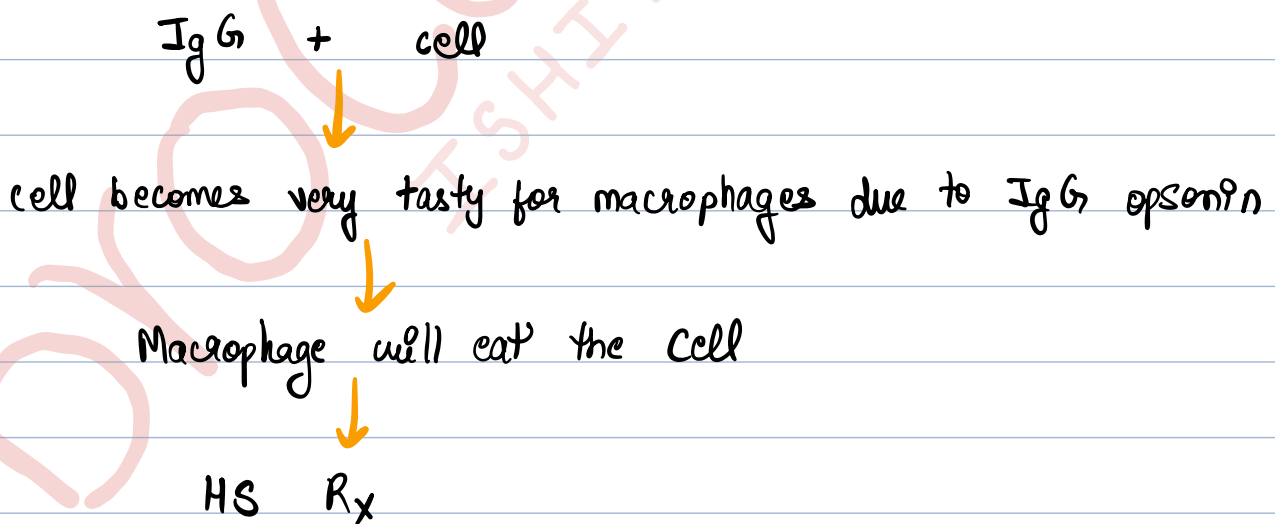 IgG + cell
cell becomes very tasty for macrophages due to IgG opsonin
Macrophage will eat the cell
HS Rx
ISHI